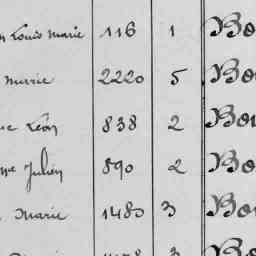 Louis Marie 116 1 Bo
Marie 2220 5 Bo
Léon 838 2 Bo
Julien 890 2 Bo
Marie 1480 3 Bo